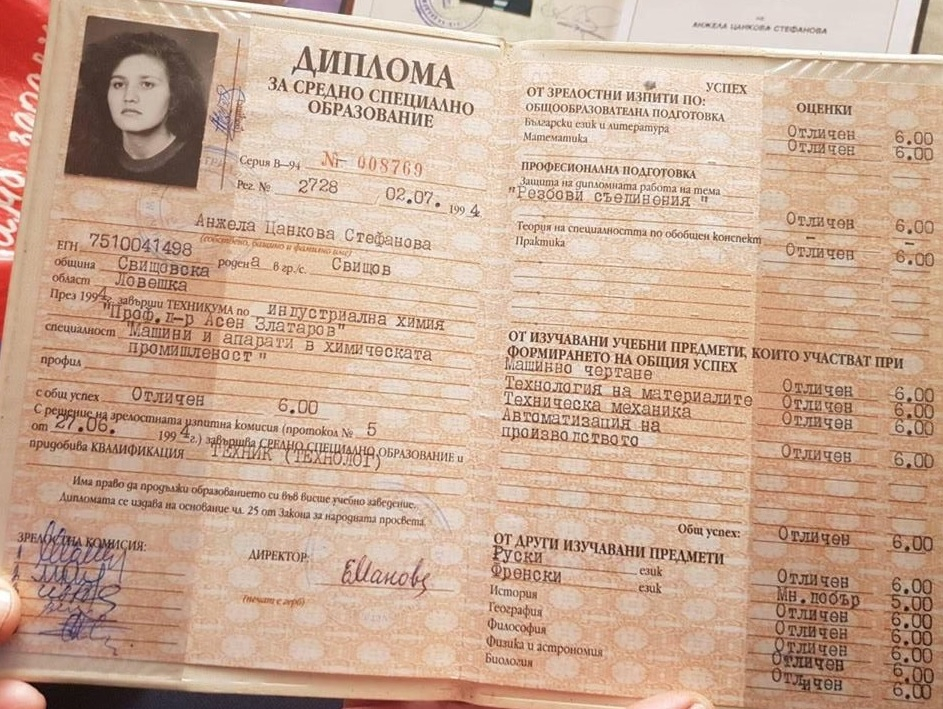 НА
АНЖЕЛА ЦАНКОВА СТЕФАНОВА
ДИПЛОМА
ЗА СРЕДНО СПЕЦИАЛНО
ОБРАЗОВАНИЕ
Серия В–94 № 008769
Рег. № 2728 02.07. 1994
Анжела Цанкова Стефанова
(собствено, бащино и фамилно име)
ЕГН 7510041498
община Свищовска родена в гр./с. Свищов
област Ловешка
През 1994 г. завърши ТЕХНИКУМА по индустриална химия
"Проф. д-р Асен Златаров"
специалност "Машини и апарати в химическата
промишленост"
профил
с общ успех Отличен 6.00
С решение на зрелостната изпитна комисия (протокол № 5
от 27.06. 1994 г.) завършва СРЕДНО СПЕЦИАЛНО ОБРАЗОВАНИЕ и
придобива КВАЛИФИКАЦИЯ ТЕХНИК (ТЕХНОЛОГ)
Има право да продължи образованието си във висше учебно заведение.
Дипломата се издава на основание чл. 25 от Закона за народната просвета.
ЗРЕЛОСТНА КОМИСИЯ:
ДИРЕКТОР:
(печат с герб)
УСПЕХ
ОТ ЗРЕЛОСТНИ ИЗПИТИ ПО: ОЦЕНКИ
ОБЩООБРАЗОВАТЕЛНА ПОДГОТОВКА
Български език и литература Отличен 6.00
Математика Отличен 6.00
ПРОФЕСИОНАЛНА ПОДГОТОВКА
Защита на дипломната работа на тема
"Резбови съединения" Отличен 6.00
Теория на специалността по обобщен конспект – –
Практика Отличен 6.00
ОТ ИЗУЧАВАНИ УЧЕБНИ ПРЕДМЕТИ, КОИТО УЧАСТВАТ ПРИ
ФОРМИРАНЕТО НА ОБЩИЯ УСПЕХ
Машинно чертане Отличен 6.00
Технология на материалите Отличен 6.00
Техническа механика Отличен 6.00
Автоматизация на
производството Отличен 6.00
Общ успех: Отличен 6.00
ОТ ДРУГИ ИЗУЧАВАНИ ПРЕДМЕТИ
Руски език Отличен 6.00
Френски език Мн.добър 5.00
История Отличен 6.00
География Отличен 6.00
Философия Отличен 6.00
Физика и астрономия Отличен 6.00
Биология Отличен 6.00